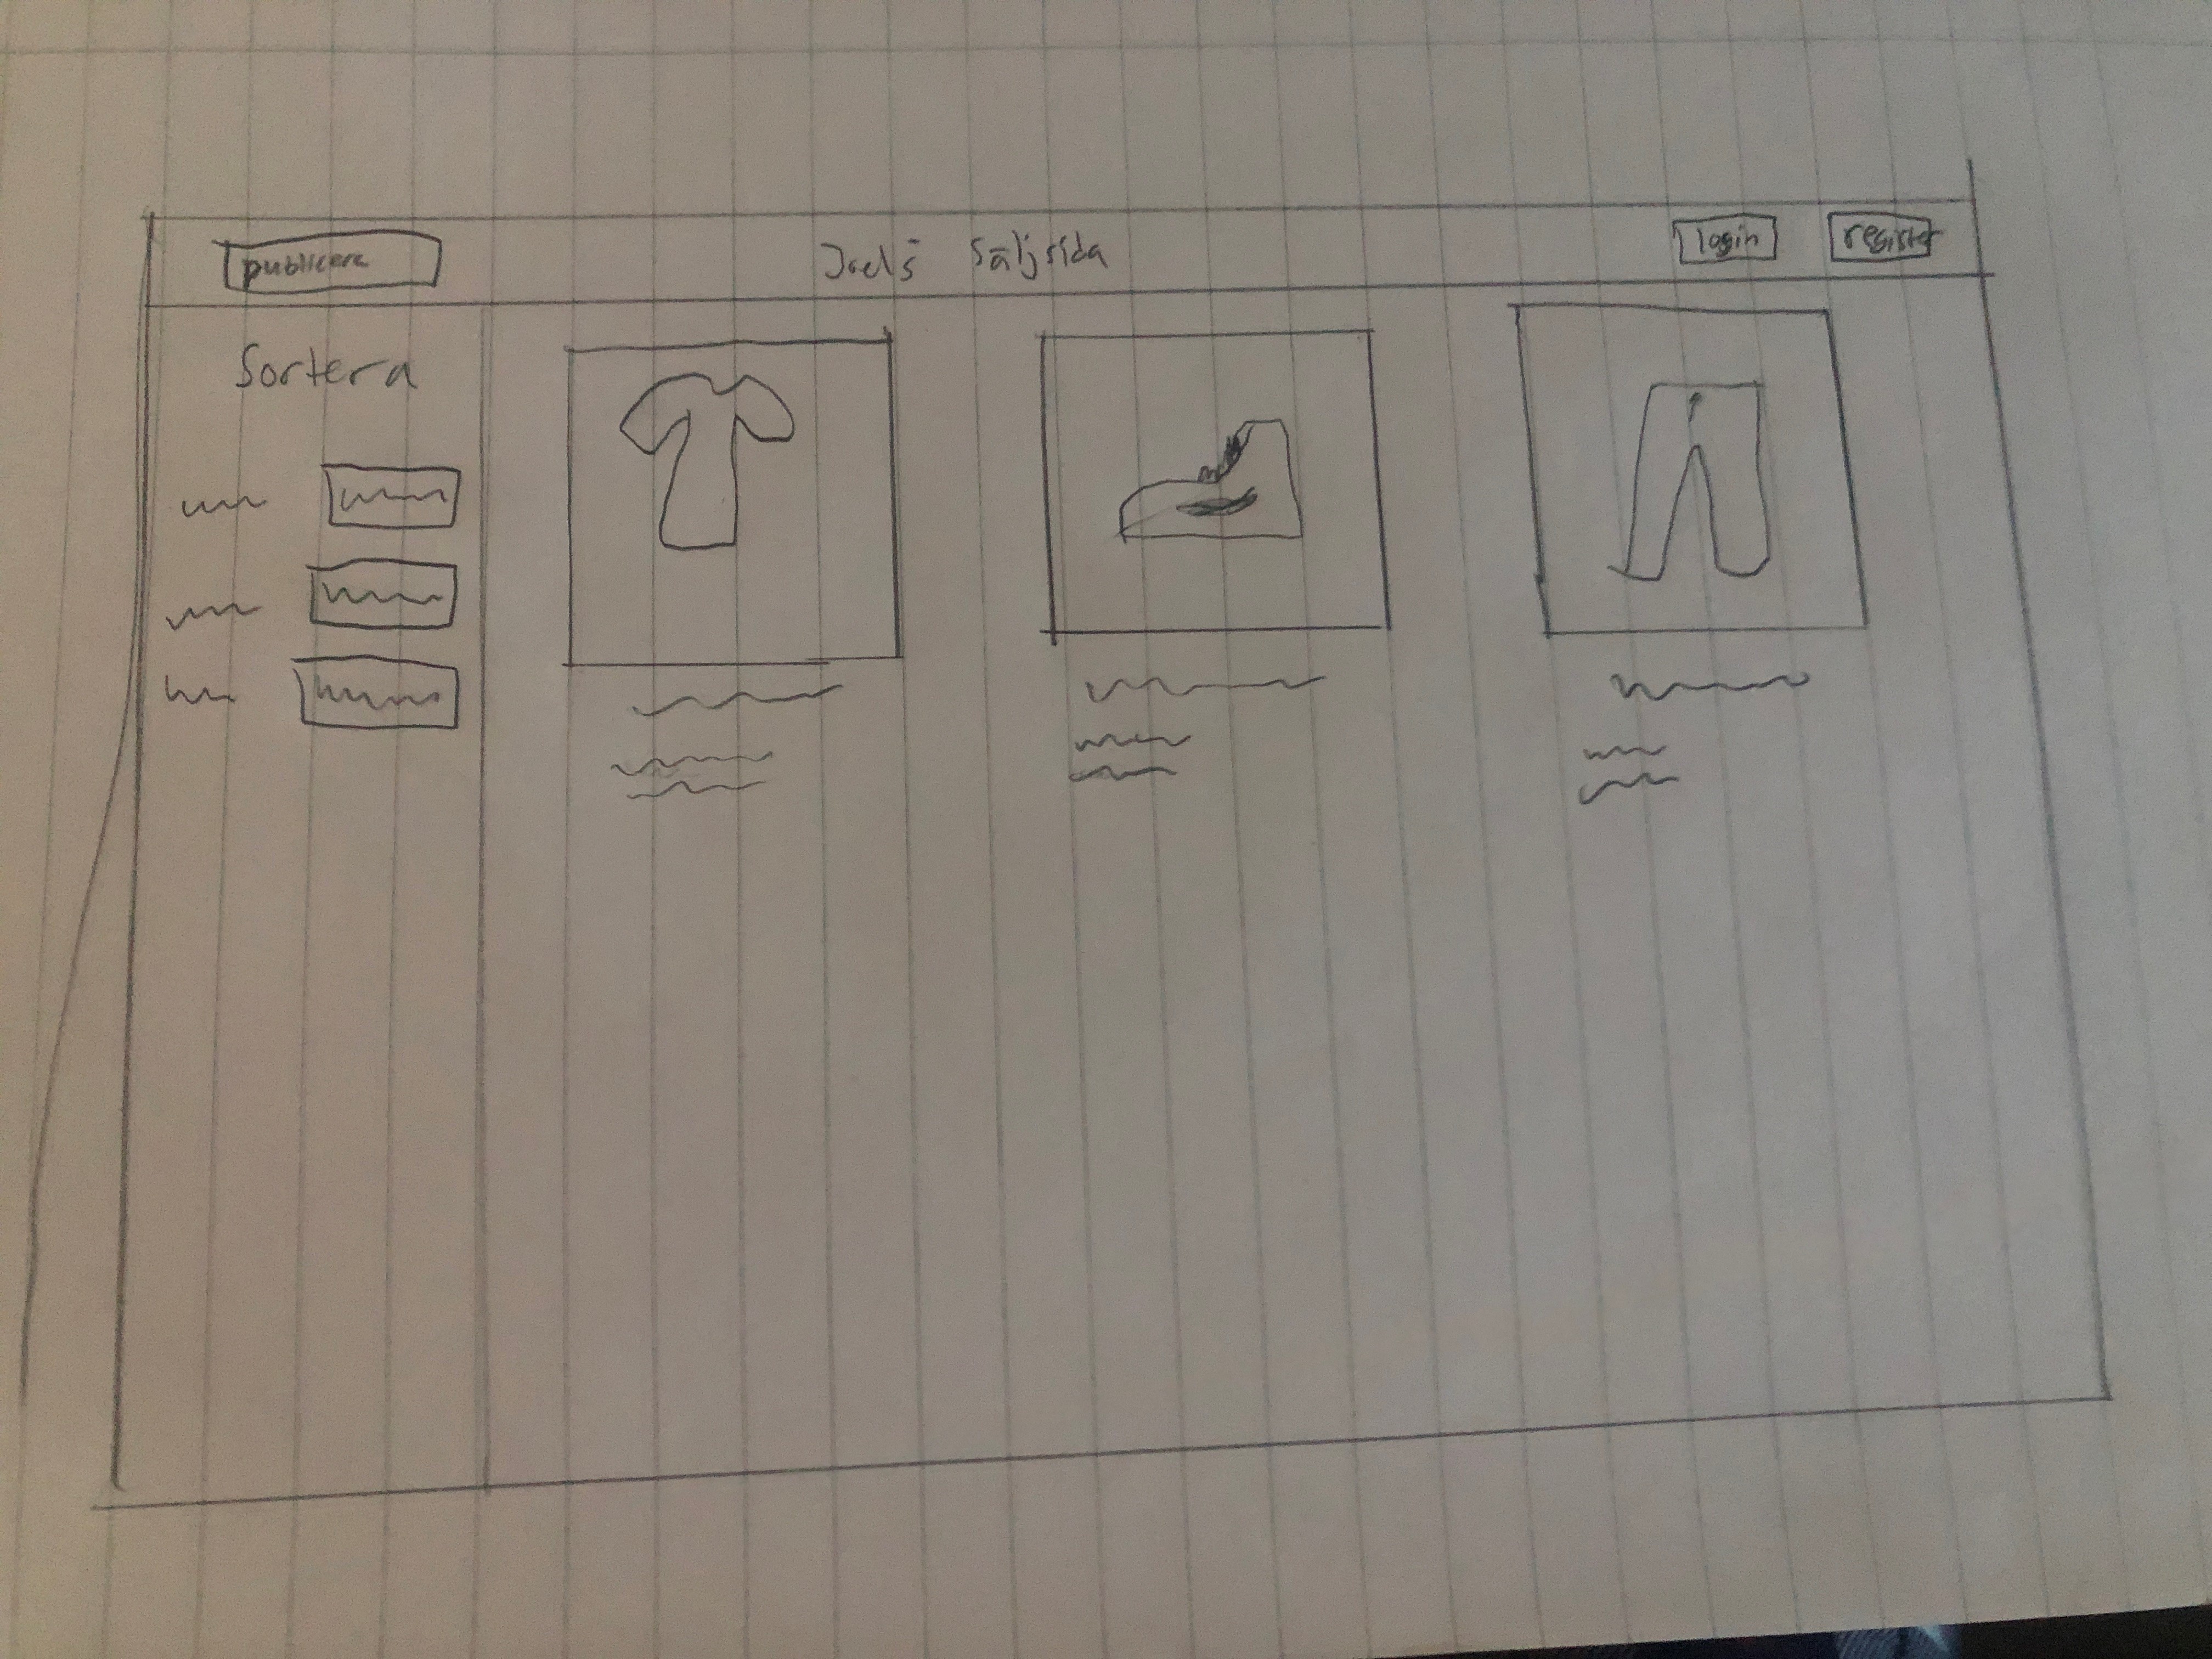 publicera
Joels säljsida
login
register
Sortera